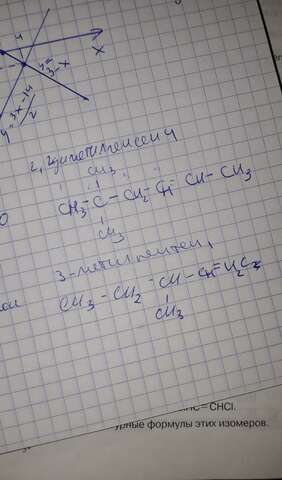 4
x
y = 3x-14 / 2
2,2диметилгексен 4
CH3
CH3 - C - CH2 - CH - CH - CH3
CH3
3-метилпентен 1
CH3 - CH2 - CH - CH = H2C
CH3
= CHCl.
рные формулы этих изомеров.